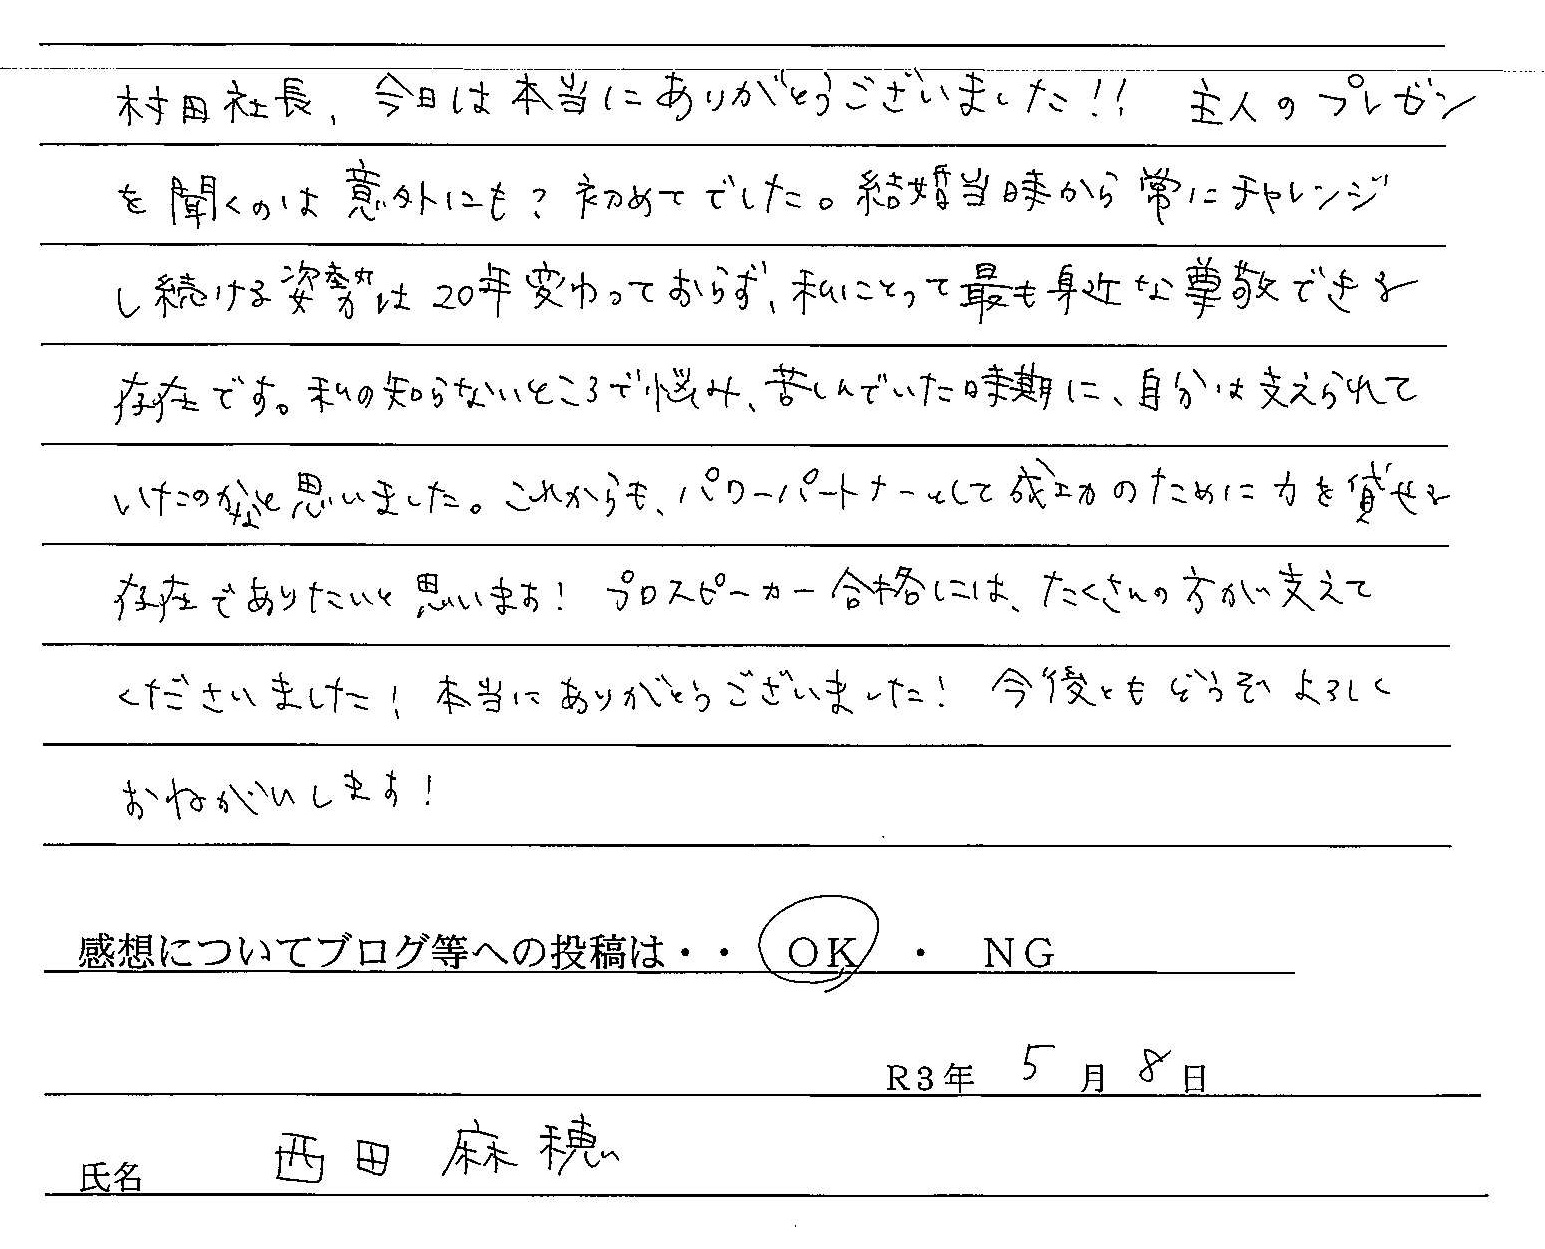 村田社長、今日は本当にありがとうございました!! 主人のプレゼン
を聞くのは意外にも?初めてでした。結婚当時から常にチャレンジ
し続ける姿勢は20年変わっておらず、私にとって最も身近な尊敬できる
存在です。私の知らないところで悩み、苦しんでいた時期に、自分は支えられて
いたのかなと思いました。これからも、パワーパートナーとして成功のために力を貸せる
存在でありたいと思います! プロスピーカー合格には、たくさんの方が支えて
くださいました! 本当にありがとうございました! 今後ともどうぞよろしく
おねがいします!
感想についてブログ等への投稿は・・ OK ・ NG
R3年 5月 8日
氏名 西田 麻穂